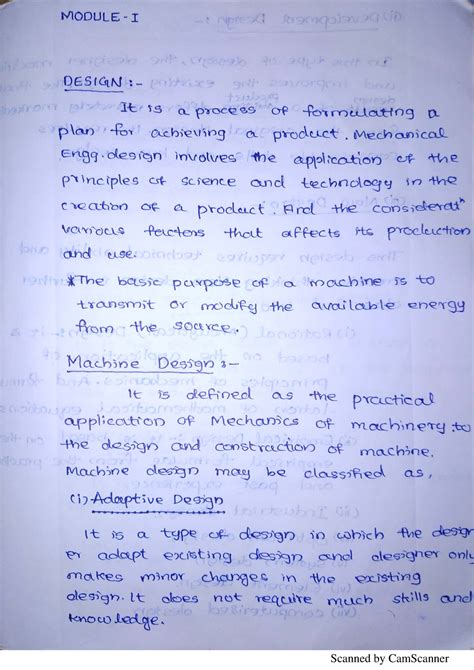 MODULE-I
DESIGN :-
It is a process of formulating a
plan for achieving a product. Mechanical
Engg. design involves the application of the
principles of science and technology in the
creation of a product. And the considerat
various factors that affects its production
and use.
*The basic purpose of a machine is to
transmit or modify the available energy
from the source.
Machine Design :-
It is defined as the practical
application of Mechanics of machinery to
the design and construction of machine.
Machine design may be classified as,
(i) Adaptive Design
It is a type of design in which the design
er adapt existing design and designer only
makes minor changes in the existing
design. It does not require much skills and
knowledge.
Scanned by CamScanner